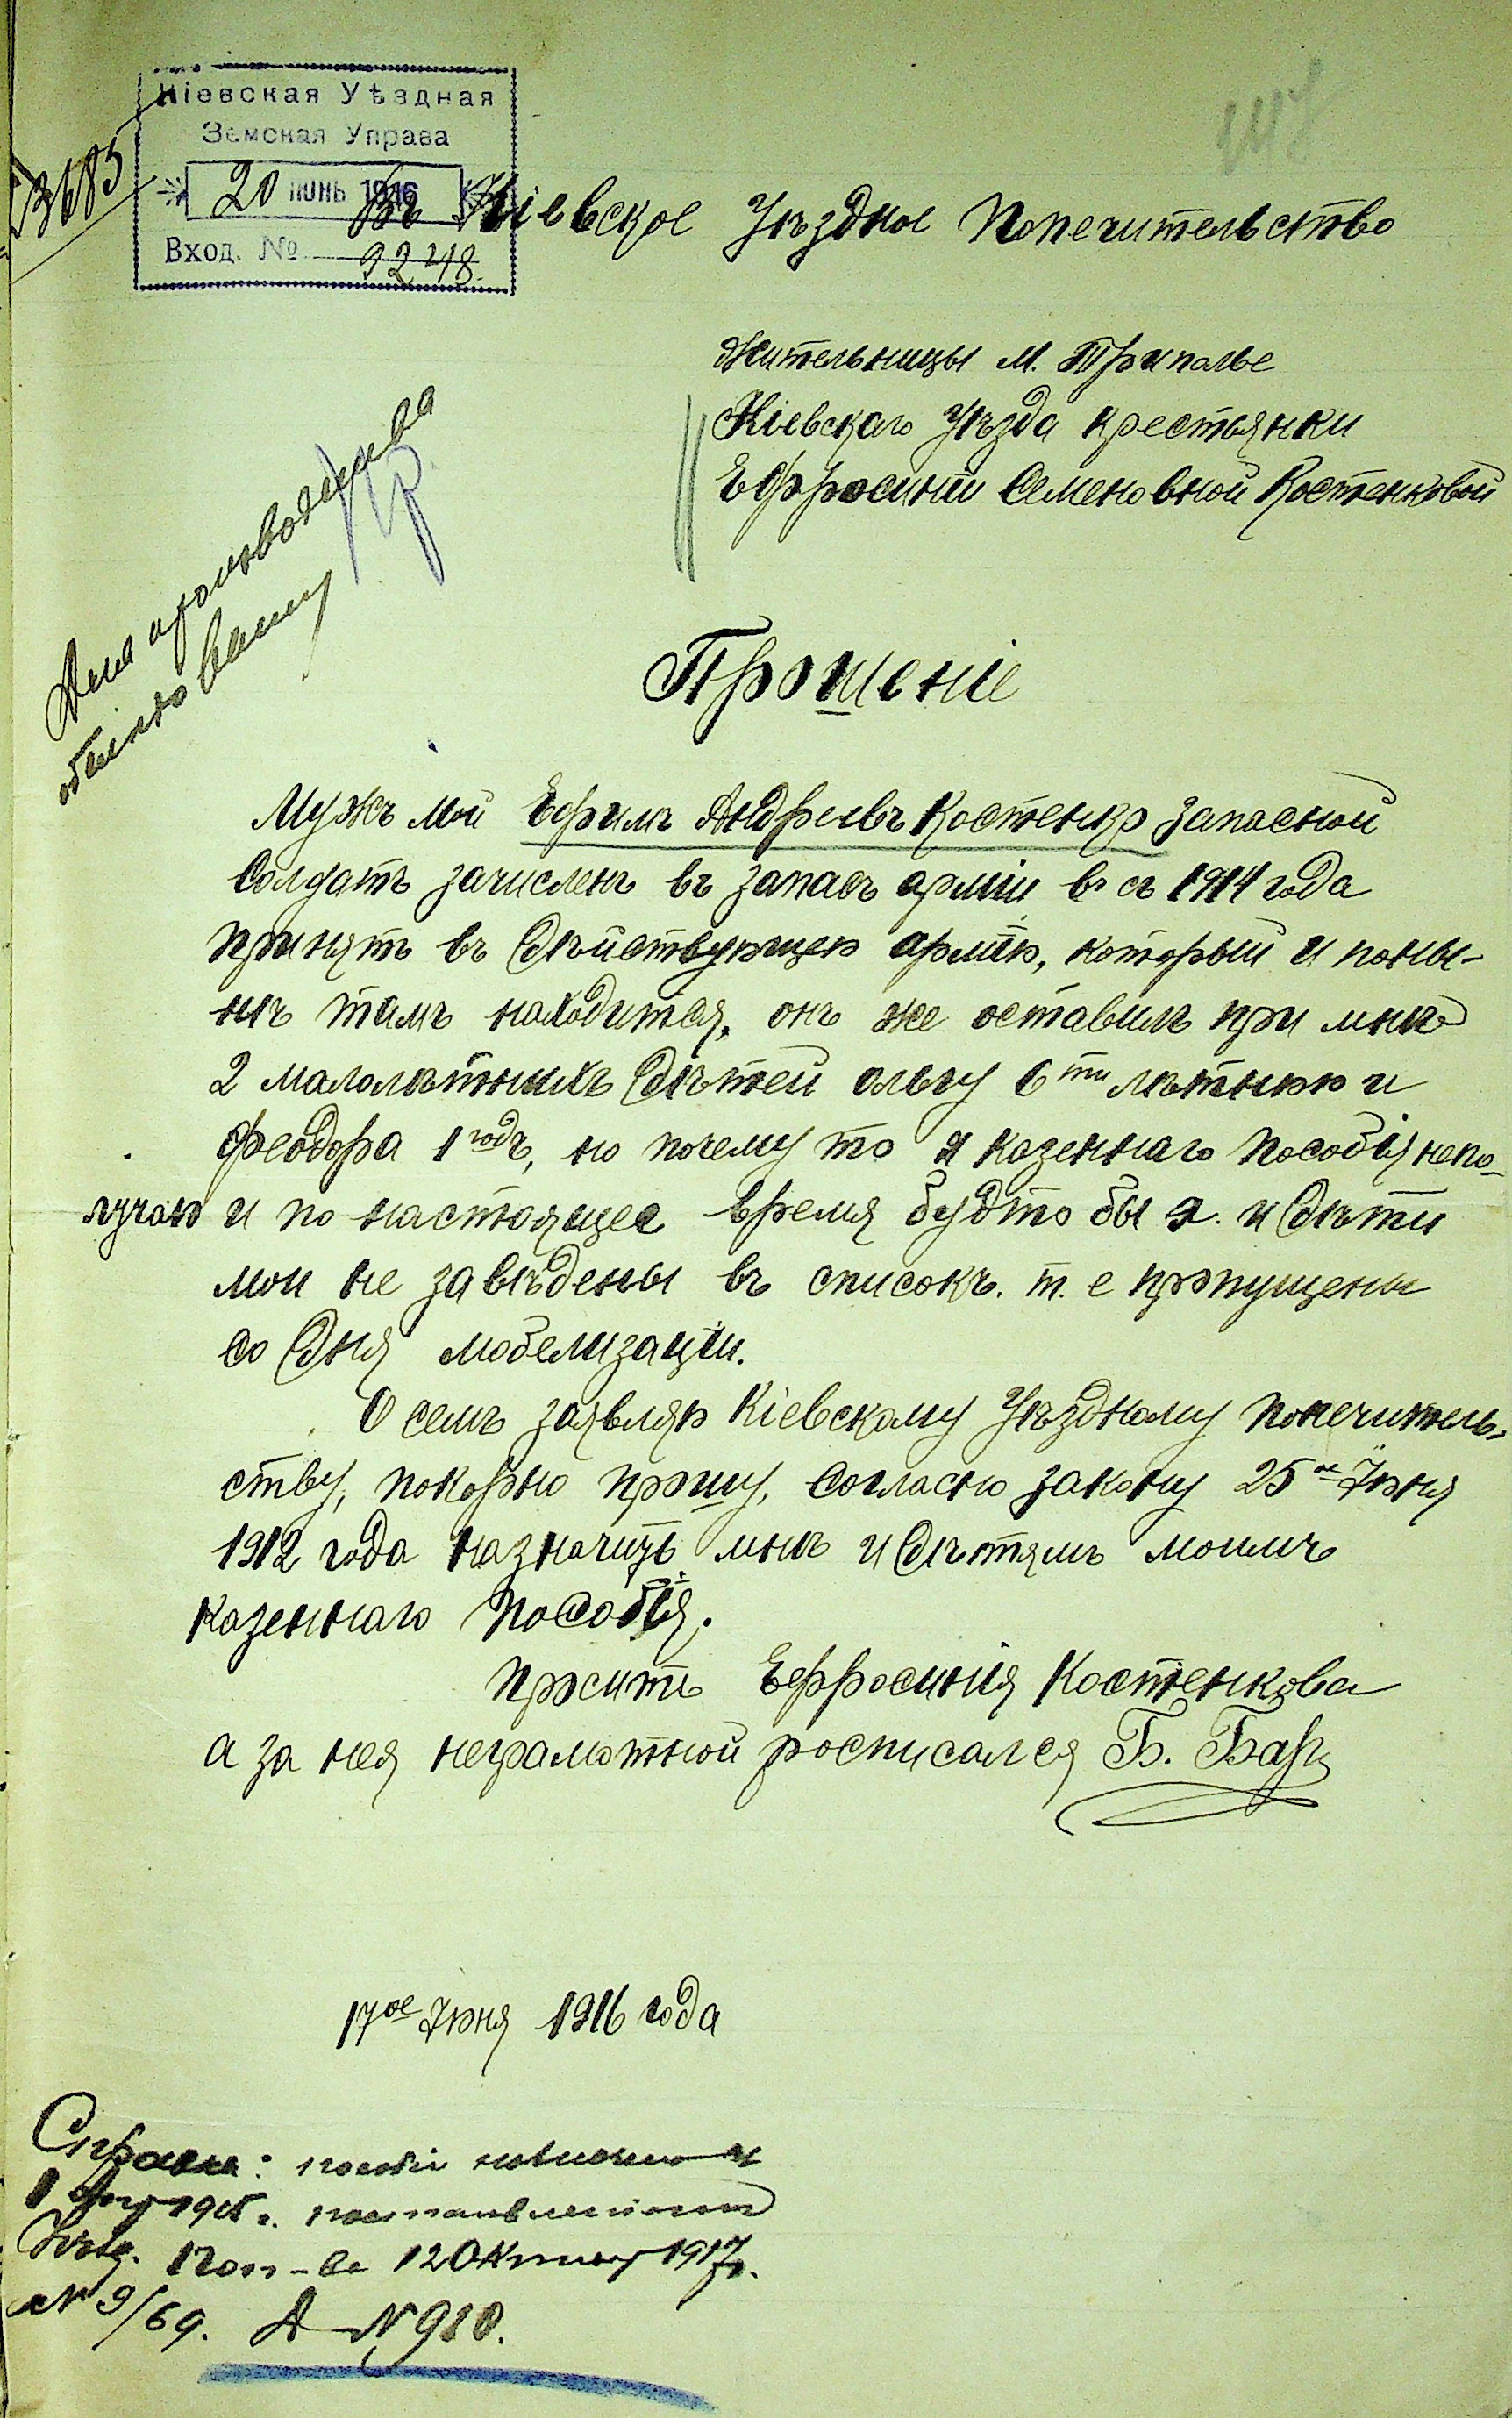 Кіевская Уѣздная
Земская Управа
20 ІЮНЬ 1916
Вход. №
3685
Въ Кіевское Уѣздное Попечительство
Жительницы м. Триполье
Кіевскаго Уѣзда крестьянки
Ефросиніи Семеновной Костенковой
Прошеніе
Мужъ мой Ефимъ Андреевъ Костенко запасной
Солдатъ зачисленъ въ запасъ арміи въ съ 1914 года
принятъ въ Дѣйствующую армію, который и поны-
нѣ тамъ находится, онъ же оставилъ при мнѣ
2 малолѣтнихъ Дѣтей ольгу 6ти лѣтнюю и
Феодора 1 годъ, но почему то я казеннаго пособія непо-
лучаю и по настоящее время будто бы я. и Дѣти
мои не завѣдены въ списокъ. т. е пропущены
со Дня мобелизаціи.
О семъ заявляю Кіевскому Уѣздному попечитель-
ству, покорно прошу, Согласно закону 25го Іюня
1912 года назначить мнѣ и Дѣтямъ моимъ
казеннаго пособія.
проситъ Ефросинія Костенкова
а за нея неграмотной росписался Б. Барз
17ое Іюня 1916 года
Справка:
1915 г.
Поп-ва 12 Октября 1917г.
№ 9/69. Д №910.